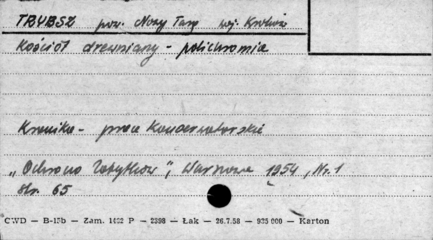 TRYBSZ pow. Nowy Targ woj. Kraków
Kościół drewniany - polichromia
Kronika - prace Konserwatorskie
"Ochrona Zabytków", Warszawa 1954, Nr. 1
str. 65
CWD — B-15b — Zam. 1422 P — 2398 — Łak — 26.7.58 — 935 000 — Karton